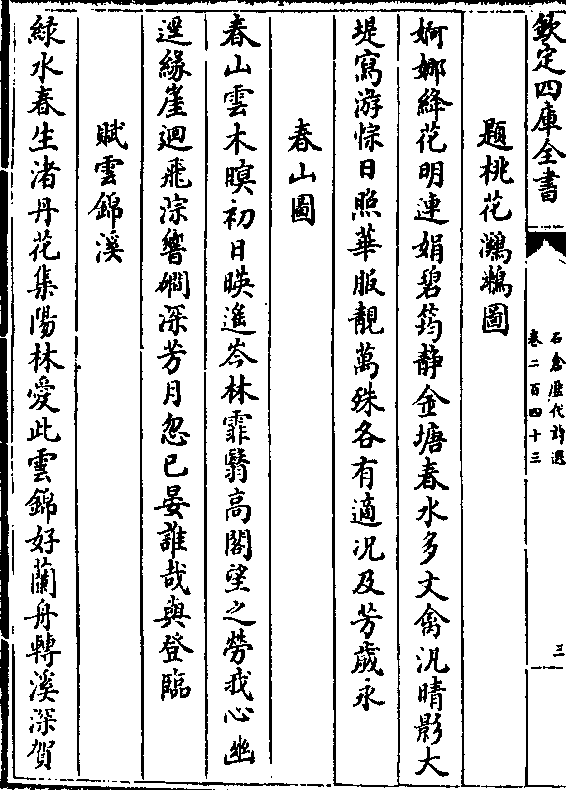 欽定四庫全書
石倉歷代詩選
卷二百四十三
三
題桃花鸂鶒圖
婀娜絳花明連娟碧筠静金塘春水多文禽汎晴影大
堤寫游悰日照華服靚萬殊各有適况及芳歲永
春山圖
春山雲木暝初日暎遙岑林霏翳高閣望之勞我心幽
逕緣崖迴飛淙響磵深芳月忽已晏誰哉與登臨
賦雲錦溪
緑水春生渚丹花集陽林愛此雲錦好蘭舟轉溪深賀